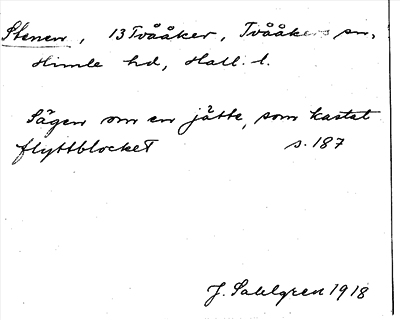 Stenen, 13 Tvååker, Tvååkers sn,
Himle hd, Hall. l.
Sägen om en jätte, som kastat
flyttblocket s. 187
J. Sahlgren 1918